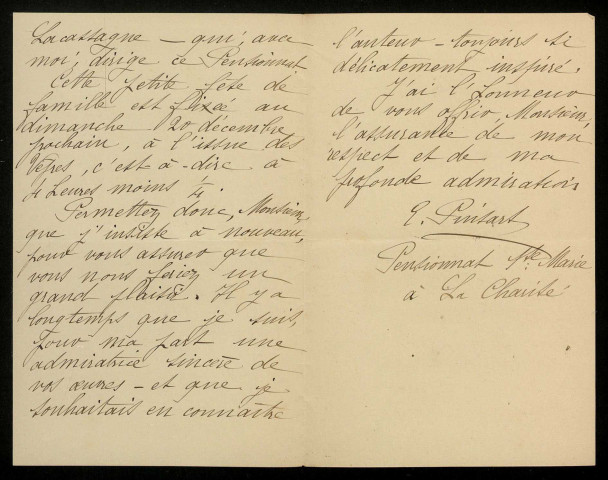 Lacassagne – qui, avec
moi, dirige ce Pensionnat
Cette petite fête de
famille est fixée au
dimanche 20 décembre
prochain, à l'issue des
Vêpres, c'est-à-dire à
4 heures moins ¼.
Permettez donc, Monsieur,
que j'insiste à nouveau,
pour vous assurer que
vous nous feriez un
grand plaisir. Il y a
longtemps que je suis,
pour ma part une
admiratrice sincère de
vos œuvres – et que je
souhaitais en connaître
l'auteur – toujours si
délicatement inspiré.
J'ai l'honneur
de vous offrir, Monsieur,
l'assurance de mon
respect et de ma
profonde admiration
E.
Pensionnat Ste Marie
à La Charité